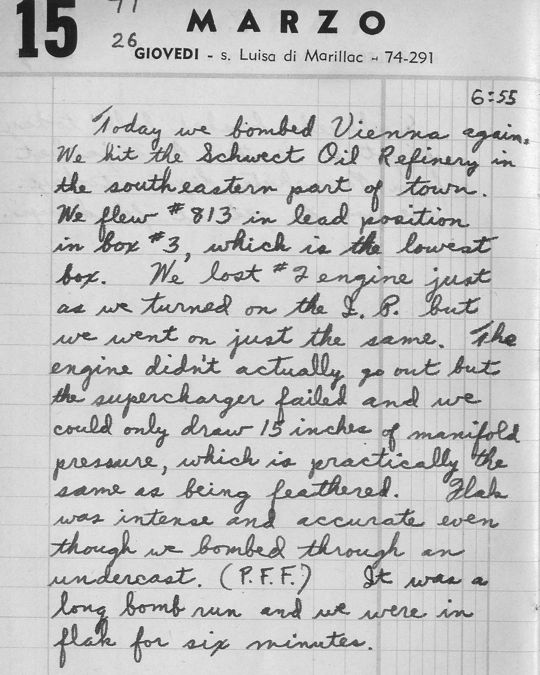 15
MARZO
26
GIOVEDI - s. Luisa di Marillac - 74-291
6:55
Today we bombed Vienna again.
We hit the Schwect Oil Refinery in
the southeastern part of town.
We flew #813 in lead position
in box #3, which is the lowest
box. We lost #2 engine just
as we turned on the I.P. but
we went on just the same. The
engine didn't actually go out but
the supercharger failed and we
could only draw 15 inches of manifold
pressure, which is practically the
same as being feathered. Flak
was intense and accurate even
though we bombed through an
undercast. (P.F.F.) It was a
long bomb run and we were in
flak for six minutes.